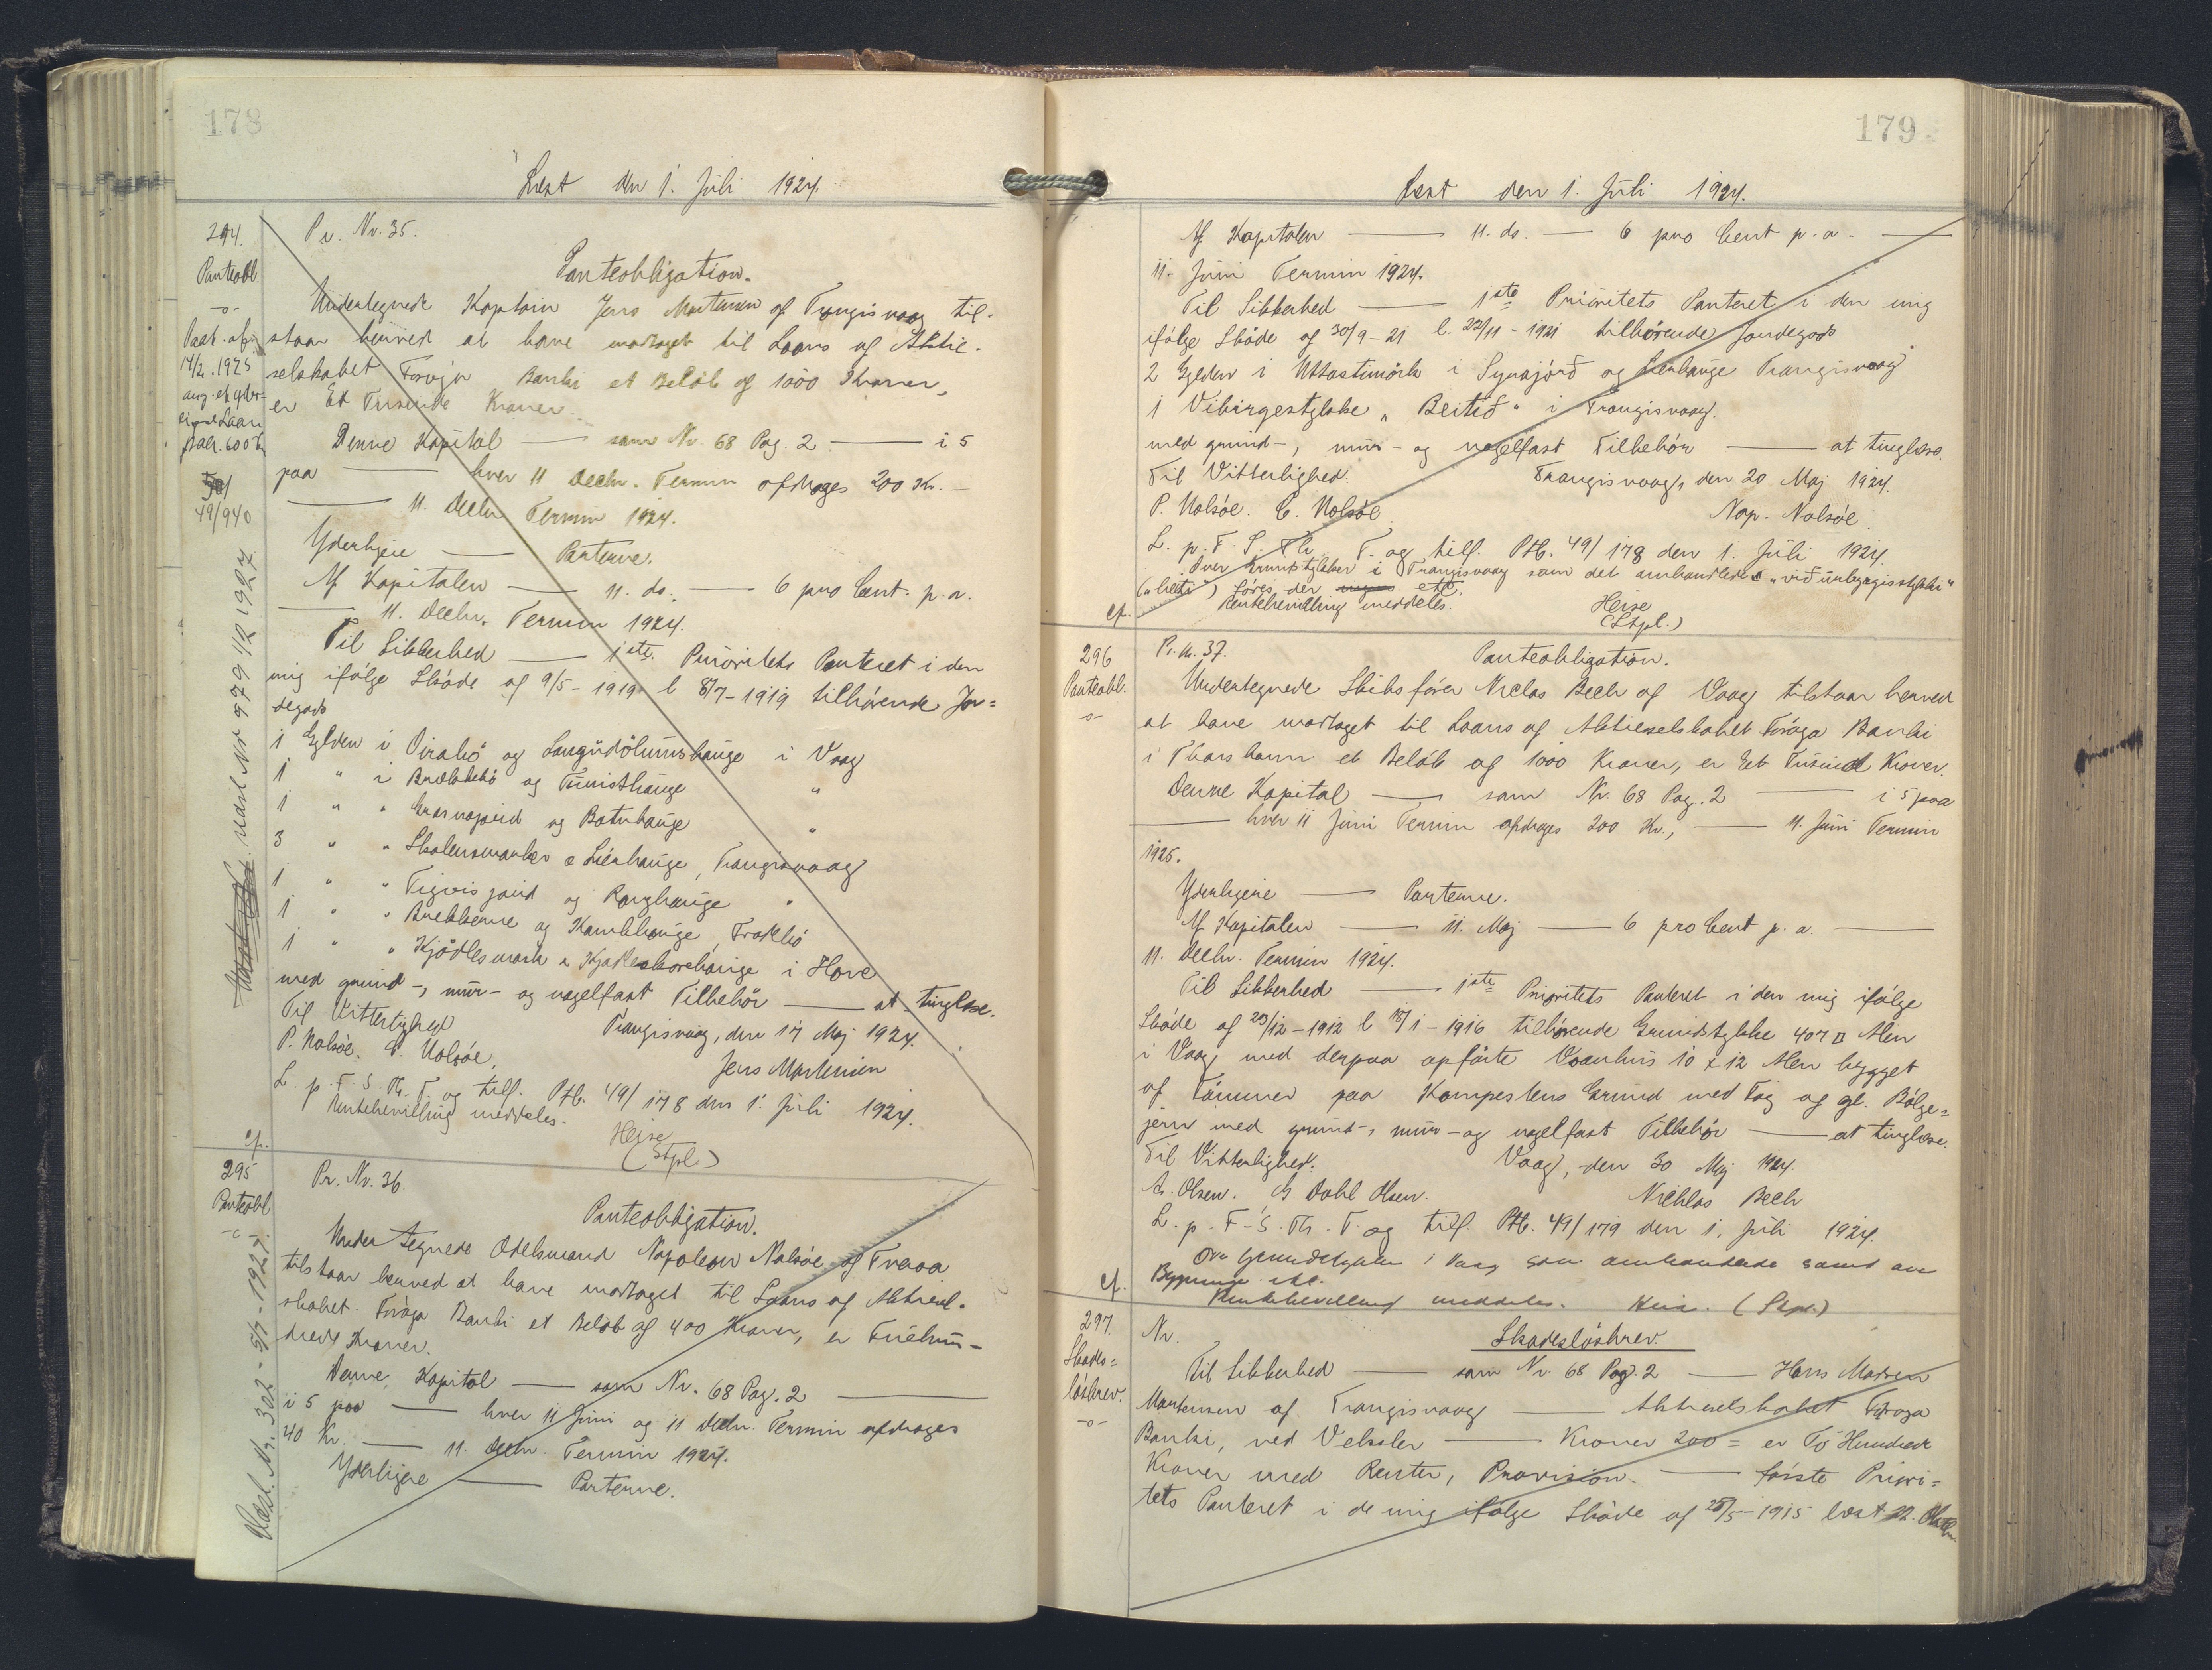 178
Læst den 1. Juli 1924.
294.
Panteobl.
-o-
Paat. afg.
14/2. 1925
ang. et yder-
Laan
600 K
49/940
Udsl. Nr 979 1/12 1927
Pr. Nr. 35.
Panteobligation.
Undertegnede Kaptain Jens Mortensen af Trangisvaag til-
staar herved at have modtaget til Laans af Aktie-
selskabet Føroya Banki et Beløb af 1000 Kroner,
er Et Tusinde Kroner.
Denne Kapital —— som Nr. 68 Pag. 2 —— i 5
paa —— hver 11 Decbr. Termin afdrages 200 Kr. —
—— 11. Decbr. Termin 1924.
Yderligere —— Panterne.
Af Kapitalen —— 11. ds. —— 6 pro Cent. p. a.
—— 11. Decbr. Termin 1924.
Til Sikkerhed —— 1ste Prioritets Panteret i den
mig ifølge Skøde af 9/5-1919 l 8/7-1919 tilhørende Jor=
degods
1 Gylden i og i Vaag
1 " i og "
1 " " og Botnhauge "
3 " " & Lierhauge, Trangisvaag
1 " " og "
1 " " Brekkerne og Kambhauge,
1 " " Kjødlesmark & i Hove
med grund-, mur- og nagelfast Tilbehør —— at tinglæse.
Til Vitterlighed Trangisvaag, den 17 Maj 1924.
P. Nolsøe. C. Nolsøe. Jens Mortensen
L. p. F. S. Th. T. og tilf. Ptb. 49/178 den 1. Juli 1924.
Rentebevilling meddeles.
Heise
(Stpl.)
cf.
295
Panteobl
-o-
Udsl. Nr. 302 - 5/7-1927.
Pr. Nr. 36.
Panteobligation.
Undertegnede Odelsmand Napoleon Nolsøe af Tveraa
tilstaar herved at have modtaget til Laans af Aktiesel-
skabet Føroya Banki et Beløb af 400 Kroner, er Firehun-
drede Kroner.
Denne Kapital —— som Nr. 68 Pag. 2 ——
i 5 paa —— hver 11 Juni og 11 Decbr. Termin afdrages
40 Kr. —— 11. Decbr. Termin 1924.
Yderligere —— Panterne.
179
Læst den 1. Juli 1924.
Af Kapitalen —— 11. ds. —— 6 pro Cent p. a. ——
11. Juni Termin 1924.
Til Sikkerhed —— 1ste Prioritets Panteret i den mig
ifølge Skøde af 30/9-21 l. 22/11-1921 tilhørende Jordegods
2 Gylden i Uttastimørk i Synsfjørð og Lierhauge Trangisvaag
1 Vibirgestykke "Beitið" i Trangisvaag.
med grund-, mur- og nagelfast Tilbehør —— at tinglæse.
Til Vitterlighed. Trangisvaag, den 20 Maj 1924.
P. Nolsøe. C. Nolsøe. Nap. Nolsøe.
L. p. F. S. Th. T. og tilf. Ptb. 49/178 den 1. Juli 1924.
Over Grundstykker i Trangisvaag som det omhandlede
føres der
Rentebevilling meddeles. Heise
(Stpl.)
cf.
296
Panteobl.
-o-
Pr. Nr. 37. Panteobligation.
Undertegnede Skibsfører Niclas Bech af Vaag tilstaar herved
at have modtaget til Laans af Aktieselskabet Føroya Banki
i Thorshavn et Beløb af 1000 Kroner, er Et Tusind Kroner.
Denne Kapital —— som Nr. 68 Pag. 2 —— i 5 paa
—— hver 11 Juni Termin afdrages 200 Kr., —— 11. Juni Termin
1925.
Yderligere —— Panterne.
Af Kapitalen —— 11. Maj —— 6 pro Cent p. a. ——
11. Decbr. Termin 1924.
Til Sikkerhed —— 1ste Prioritets Panteret i den mig ifølge
Skøde af 23/12-1912 l 18/1-1916 tilhørende Grundstykke 407 □ Alen
i Vaag med derpaa opførte Vaanhus 10 x 12 Alen bygget
af Tømmer paa Kampestens Grund med Tag af gl. Bølge=
jern med grund-, mur- og nagelfast Tilbehør —— at tinglæse.
Til Vitterlighed. Vaag, den 30 Maj 1924.
A. Olsen. G. Dahl Olsen. Nicklas Bech
L. p. F. S. Th. T. og tilf. Ptb. 49/179 den 1. Juli 1924.
Over Grundstykker i Vaag som omhandlede samt over
Bygninger
Rentebevilling meddeles. Heise. (Stpl.)
cf.
297.
Skades=
løsbrev.
-o-
Nr. Skadesløsbrev.
Til Sikkerhed —— som Nr 68 Pag. 2 —— Hans Madsen
Mortensen af Trangisvaag —— Aktieselskabet Føroya
Banki, ved Veksler —— Kroner 200 = er To Hundrede
Kroner med Renter, Provision —— første Priori=
tets Panteret i de mig ifølge Skøde af 25/5-1915 læst 22.